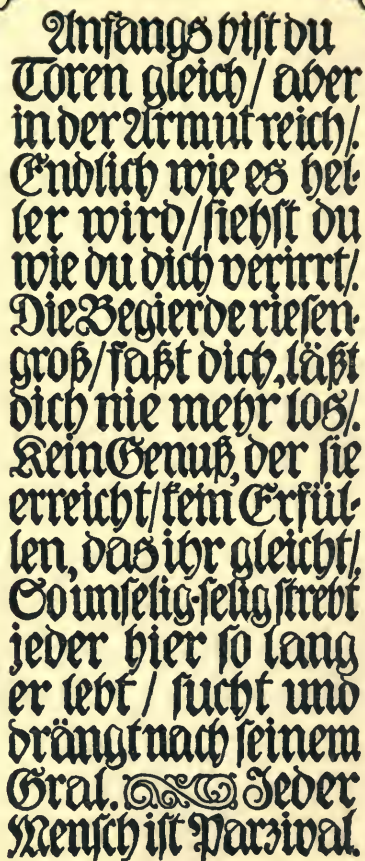 Anfangs bist du
Toren gleich / aber
in der Armut reich /.
Endlich wie es hel-
ler wird / siehst du
wie du dich verirrt /.
Die Begierde riesen-
groß / faßt dich, läßt
dich nie mehr los /.
Kein Genuß, der sie
erreicht / kein Erfül-
len, das ihr gleicht /.
So unselig-selig strebt
jeder hier so lang
er lebt / sucht und
drängt nach seinem
Gral. Jeder
Mensch ist Parzival.